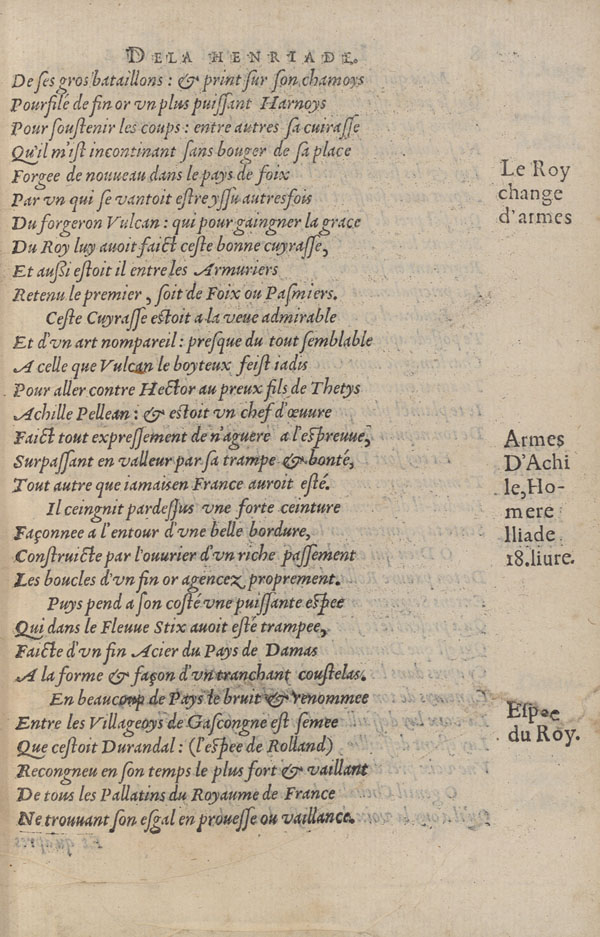 DE LA HENRIADE.
De ses gros bataillons : & print sur son chamoys
Pourfilé de fin or vn plus puissant Harnoys
Pour soustenir les coups : entre autres sa cuirasse
Qu'il m'ist incontinant sans bouger de sa place
Forgee de nouueau dans le pays de foix
Le Roy
change
d'armes
Par vn qui se vantoit estre yssu autresfois
Du forgeron Vulcan : qui pour gaingner la grace
Du Roy luy auoit faict ceste bonne cuyrasse,
Et aussi estoit il entre les Armuriers
Retenu le premier, soit de Foix ou Pasmiers.
Ceste Cuyrasse estoit a la veue admirable
Et d'vn art nompareil : presque du tout semblable
A celle que Vulcan le boyteux feist iadis
Pour aller contre Hector au preux fils de Thetys
Achille Pellean : & estoit vn chef d'œuure
Faict tout expressement de n'aguere a l'espreuue,
Surpassant en valleur par sa trampe & bonté,
Tout autre que iamais en France auroit esté.
Armes
D'Achi
le, Ho-
mere
Iliade
18. liure.
Il ceingnit pardessus vne forte ceinture
Façonnee a l'entour d'vne belle bordure,
Construicte par l'ouurier d'vn riche passement
Les boucles d'vn fin or agencez proprement.
Puys pend a son costé vne puissante espee
Qui dans le Fleuue Stix auoit esté trampee,
Faicte d'vn fin Acier du Pays de Damas
A la forme & façon d'vn tranchant coustelas.
En beaucoup de Pays le bruit & renommee
Entre les Villageoys de Gascongne est semee
Espee
du Roy.
Que cestoit Durandal : (l'espee de Rolland)
Recongneu en son temps le plus fort & vaillant
De tous les Pallatins du Royaume de France
Ne trouuant son esgal en prouesse ou vaillance.